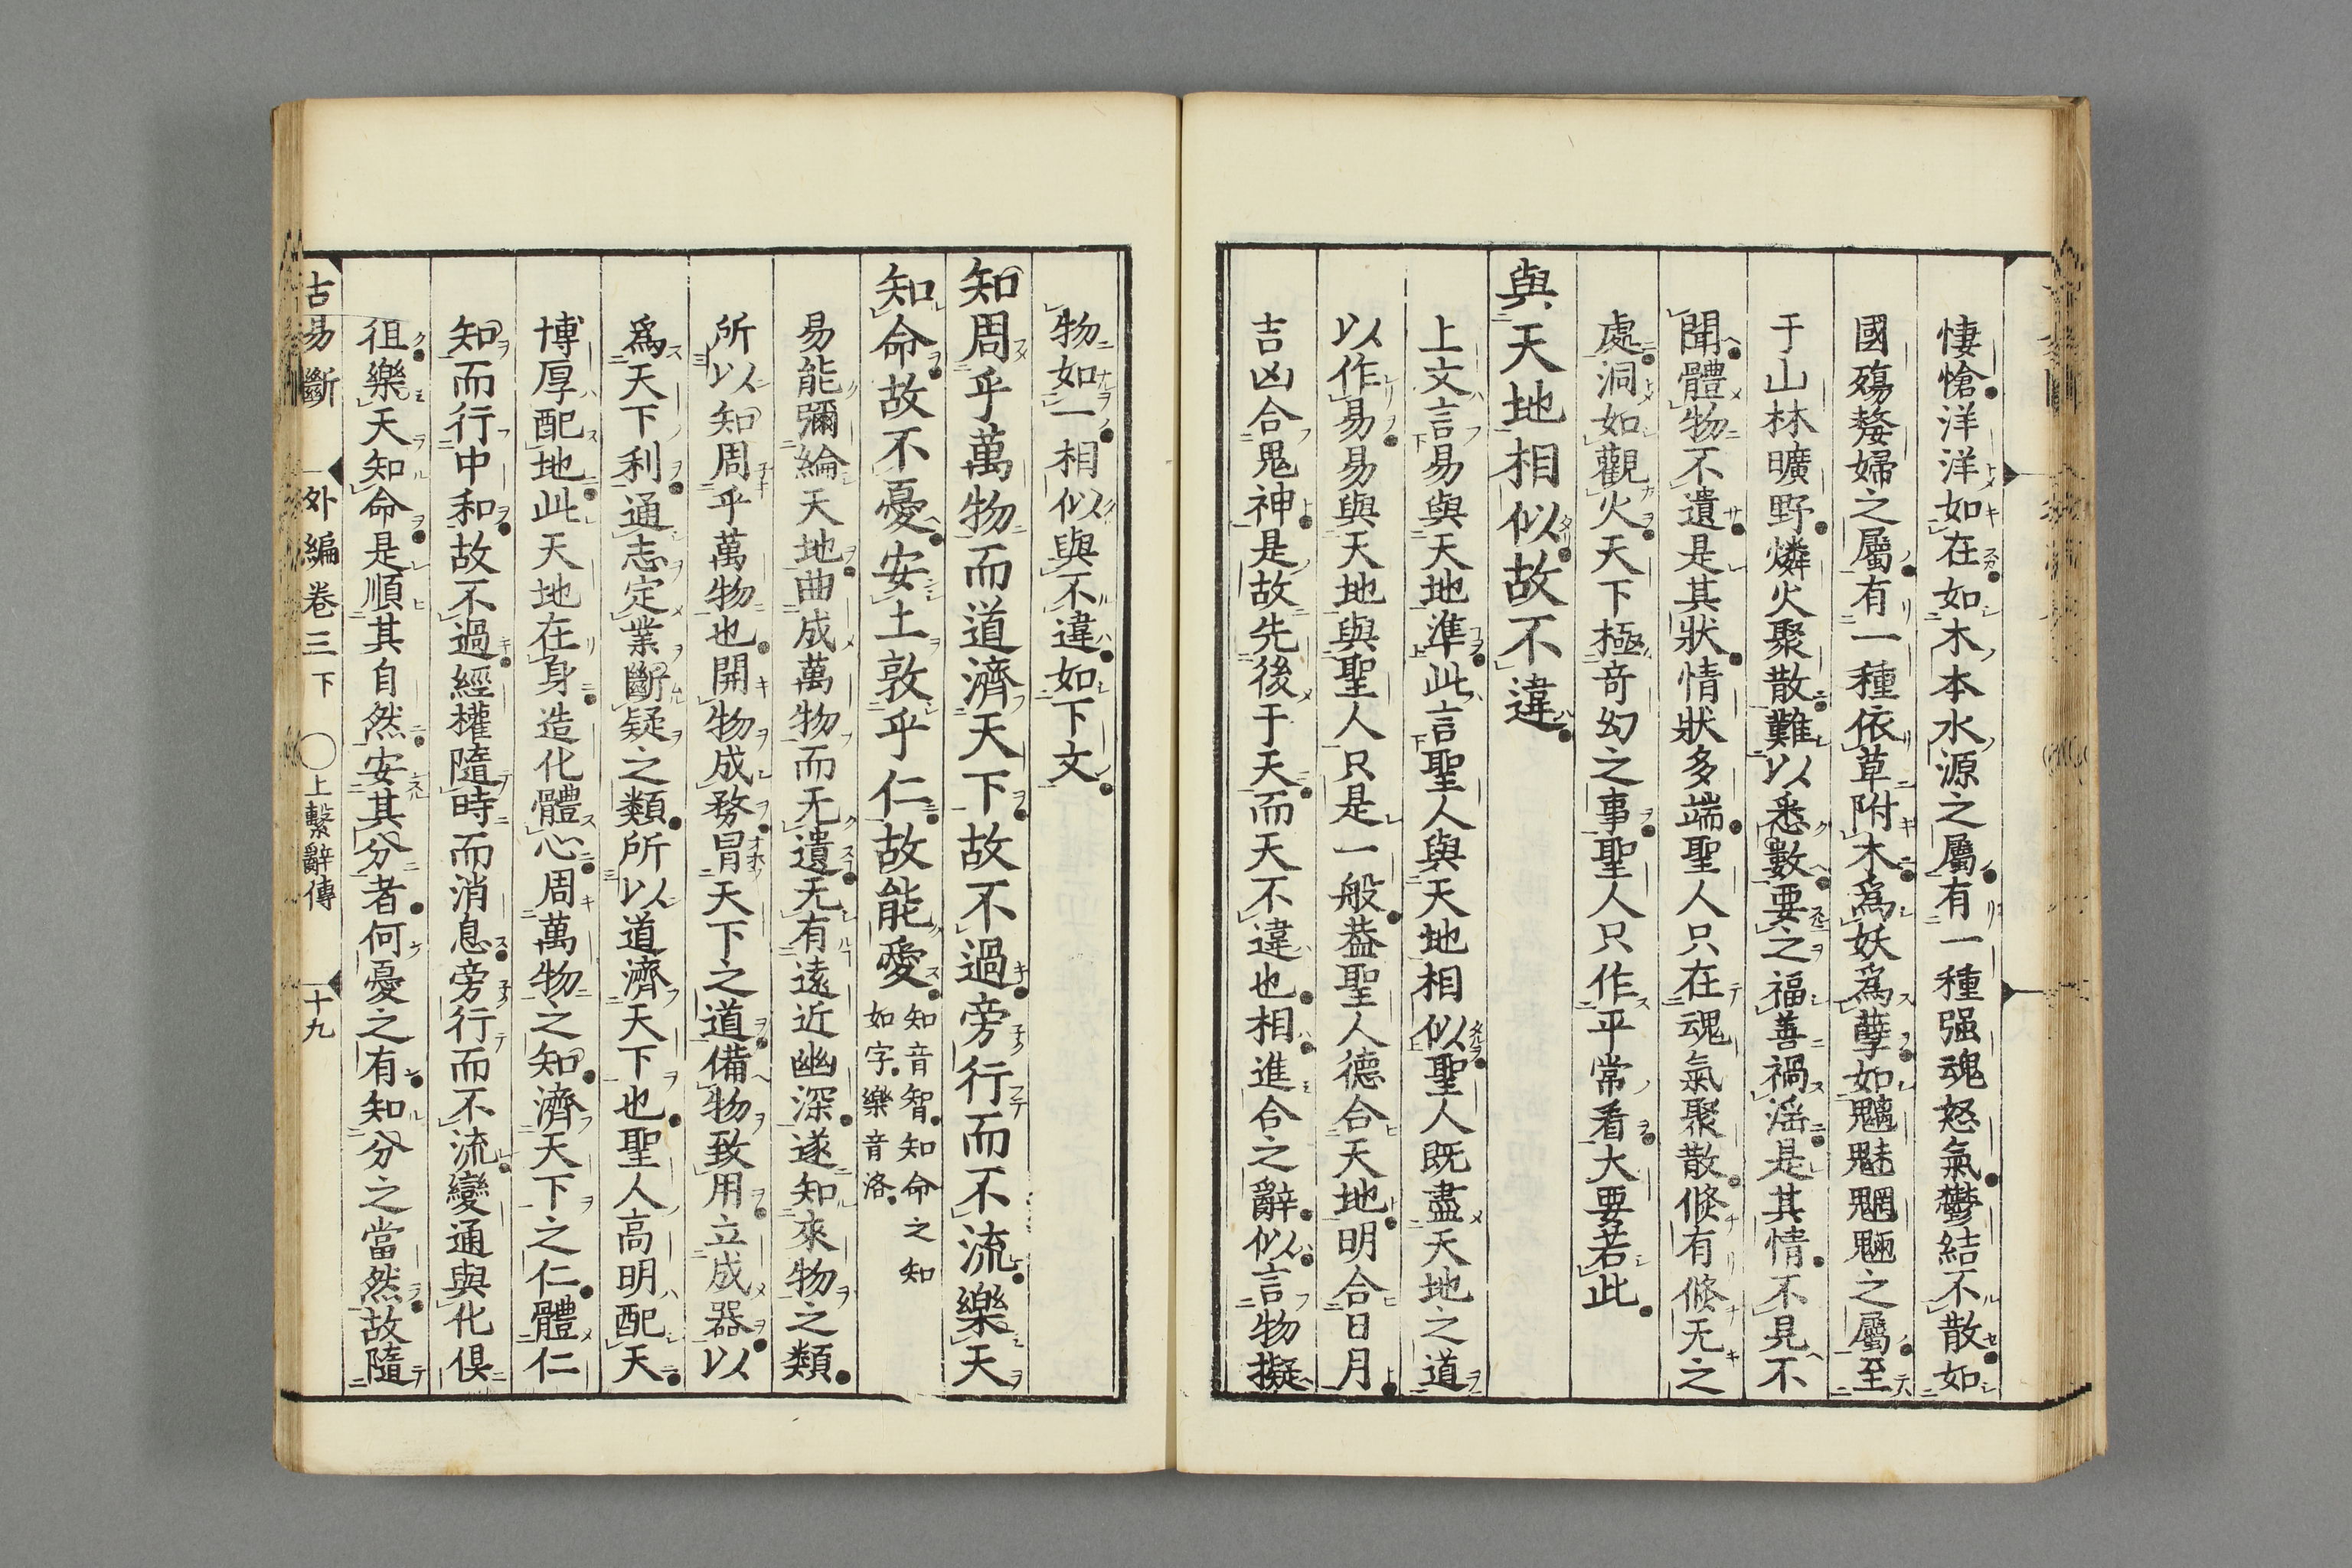 悽愴洋洋如在如木本水源之屬有一種强魂怒氣鬱結不散如
國殤嫠婦之屬有一種依草附木爲妖爲孽如魑魅魍魎之屬至
于山林曠野燐火聚散難以悉數要之福善禍淫是其情不見不
聞體物不遺是其狀情狀多端聖人只在魂氣聚散倐有倐无之
處洞如觀火天下極奇幻之事聖人只作平常看大要若此
與天地相似故不違
上文言易與天地準此言聖人與天地相似聖人既盡天地之道
以作易易與天地與聖人只是一般葢聖人德合天地明合日月
吉凶合鬼神是故先後于天而天不違也相進合之辭似言物擬
物如一相似與不違如下文
知周乎萬物而道濟天下故不過旁行而不流樂天
知命故不憂安土敦乎仁故能愛
知音智知命之知
如字樂音洛
易能彌綸天地曲成萬物而无遺无有遠近幽深遂知來物之類
所以知周乎萬物也開物成務冒天下之道備物致用立成器以
爲天下利通志定業斷疑之類所以道濟天下也聖人高明配天
博厚配地此天地在身造化體心周萬物之知濟天下之仁體仁
知而行中和故不過經權隨時而消息旁行而不流變通與化俱
徂樂天知命是順其自然安其分者何憂之有知分之當然故隨
古易斷 外編卷三下 ○上繫辭傳 十九